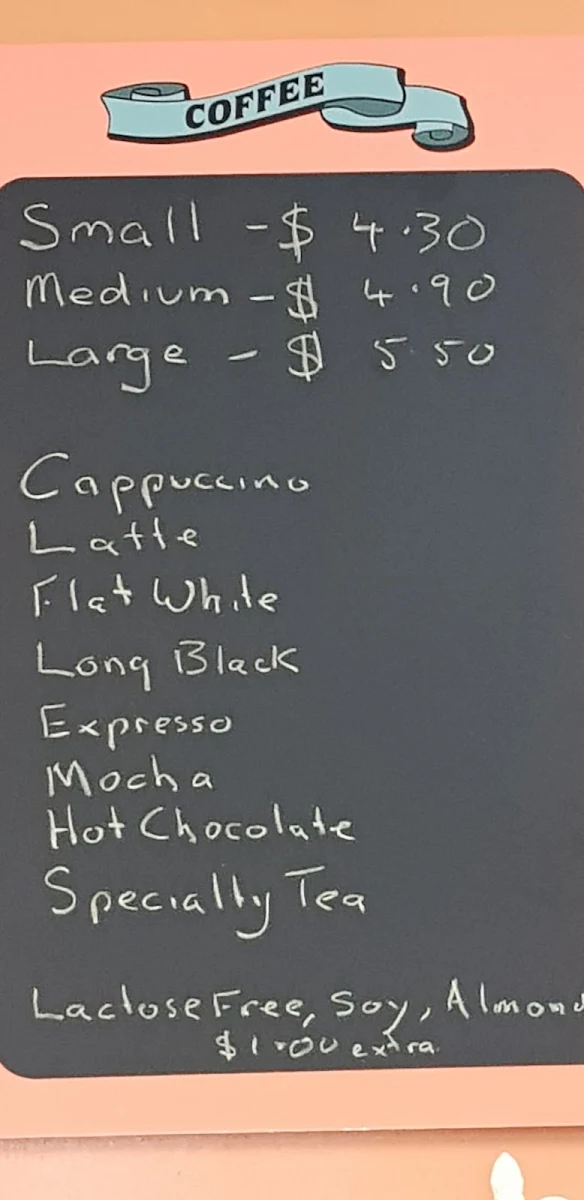 COFFEE
Small - $ 4.30
Medium - $ 4.90
Large - $ 5.50
Cappuccino
Latte
Flat White
Long Black
Expresso
Mocha
Hot Chocolate
Specialty Tea
Lactose Free, Soy, Almond
$1.00 extra